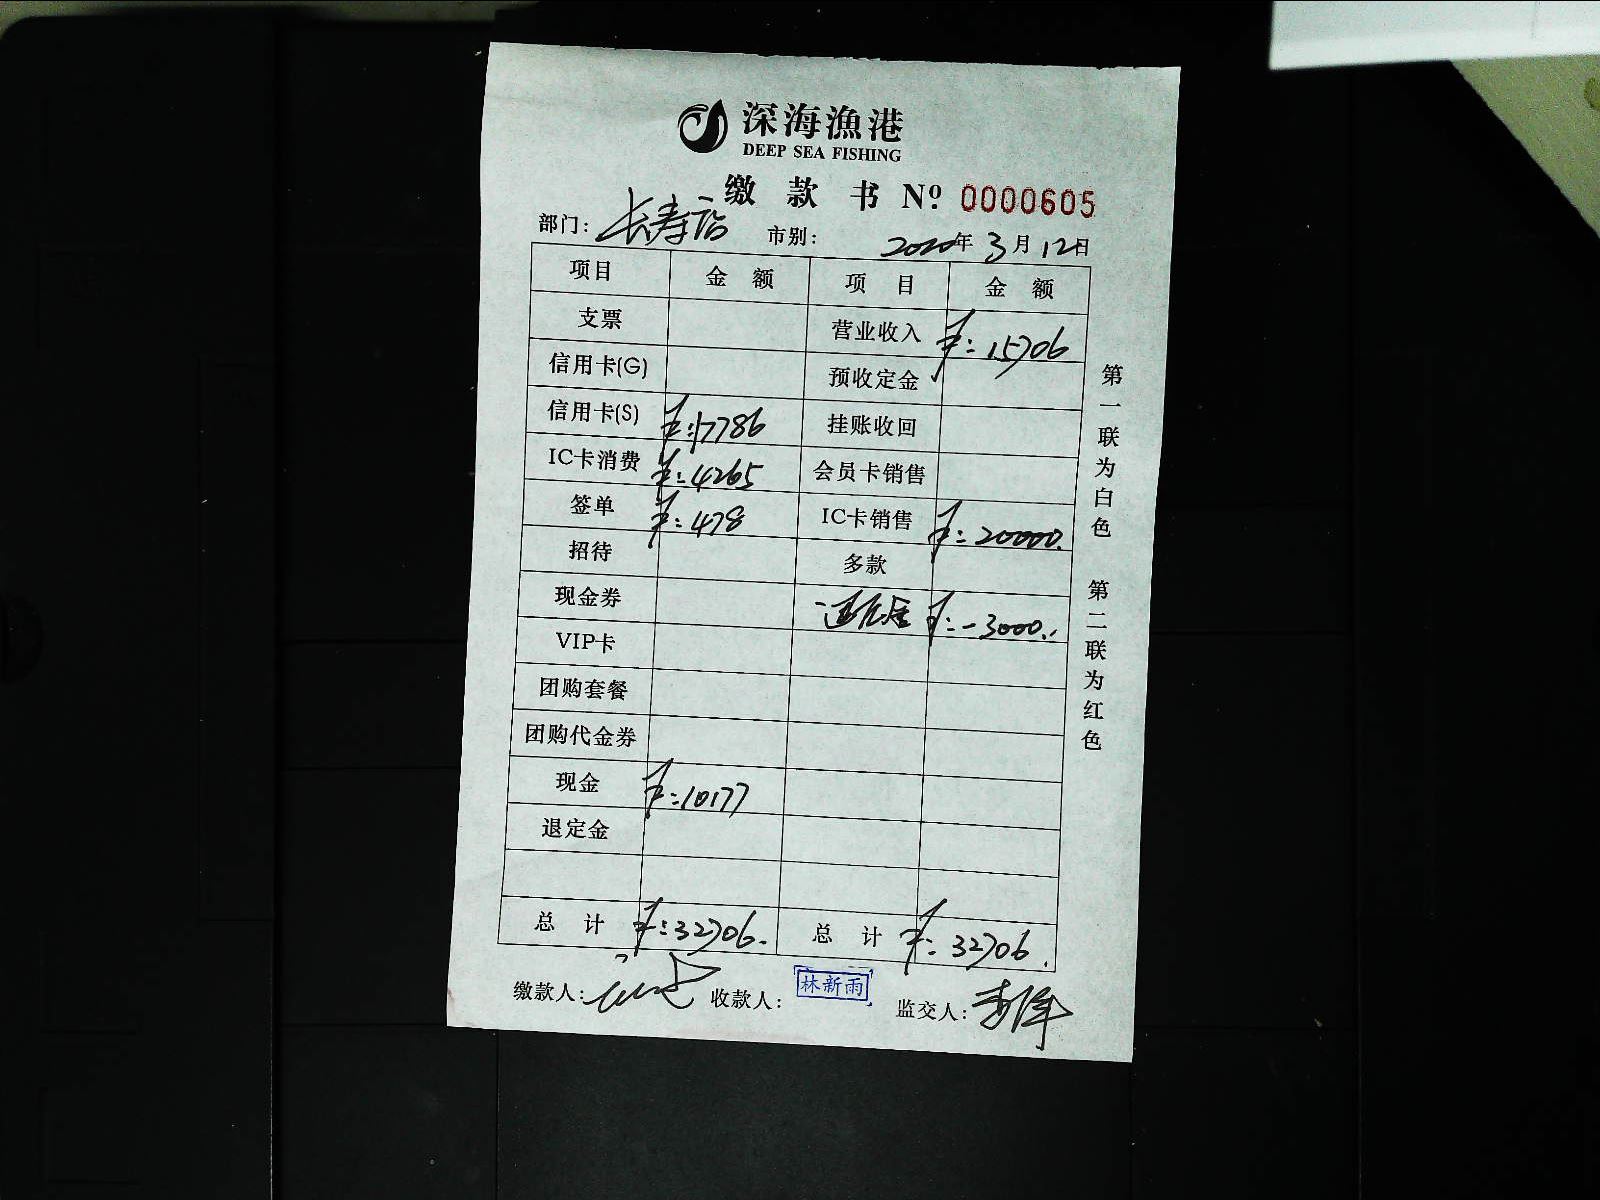 深海漁港
DEEP SEA FISHING
缴款书 Nº: 0000605
部门: 长寿 市别: 2020年3月12日
项目 金额 项目 金额
支票 营业收入 ¥:15706
信用卡(G) 预收定金
信用卡(S) ¥:17786 挂账收回
IC卡消费 ¥:4265 会员卡销售
签单 ¥:478 IC卡销售 ¥:20000.
招待 多款
现金券 ¥:-3000..
VIP卡
团购套餐
团购代金券
现金 ¥:10177
退定金
总计 ¥:32706. 总计 ¥:32706.
缴款人: 收款人: 林新雨 监交人:
第一联为白色 第二联为红色